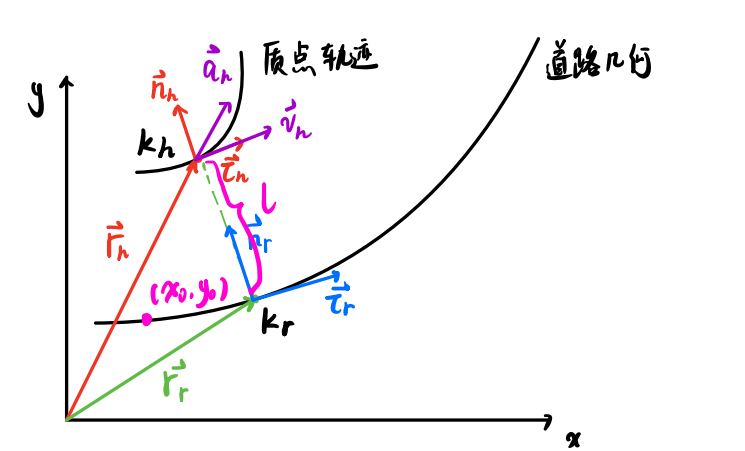 质点轨迹
道路几何
y
a⃗h
n⃗h
v⃗h
kh
τ⃗h
l
r⃗h
n⃗r
(x0,y0)
τ⃗r
kr
r⃗r
x